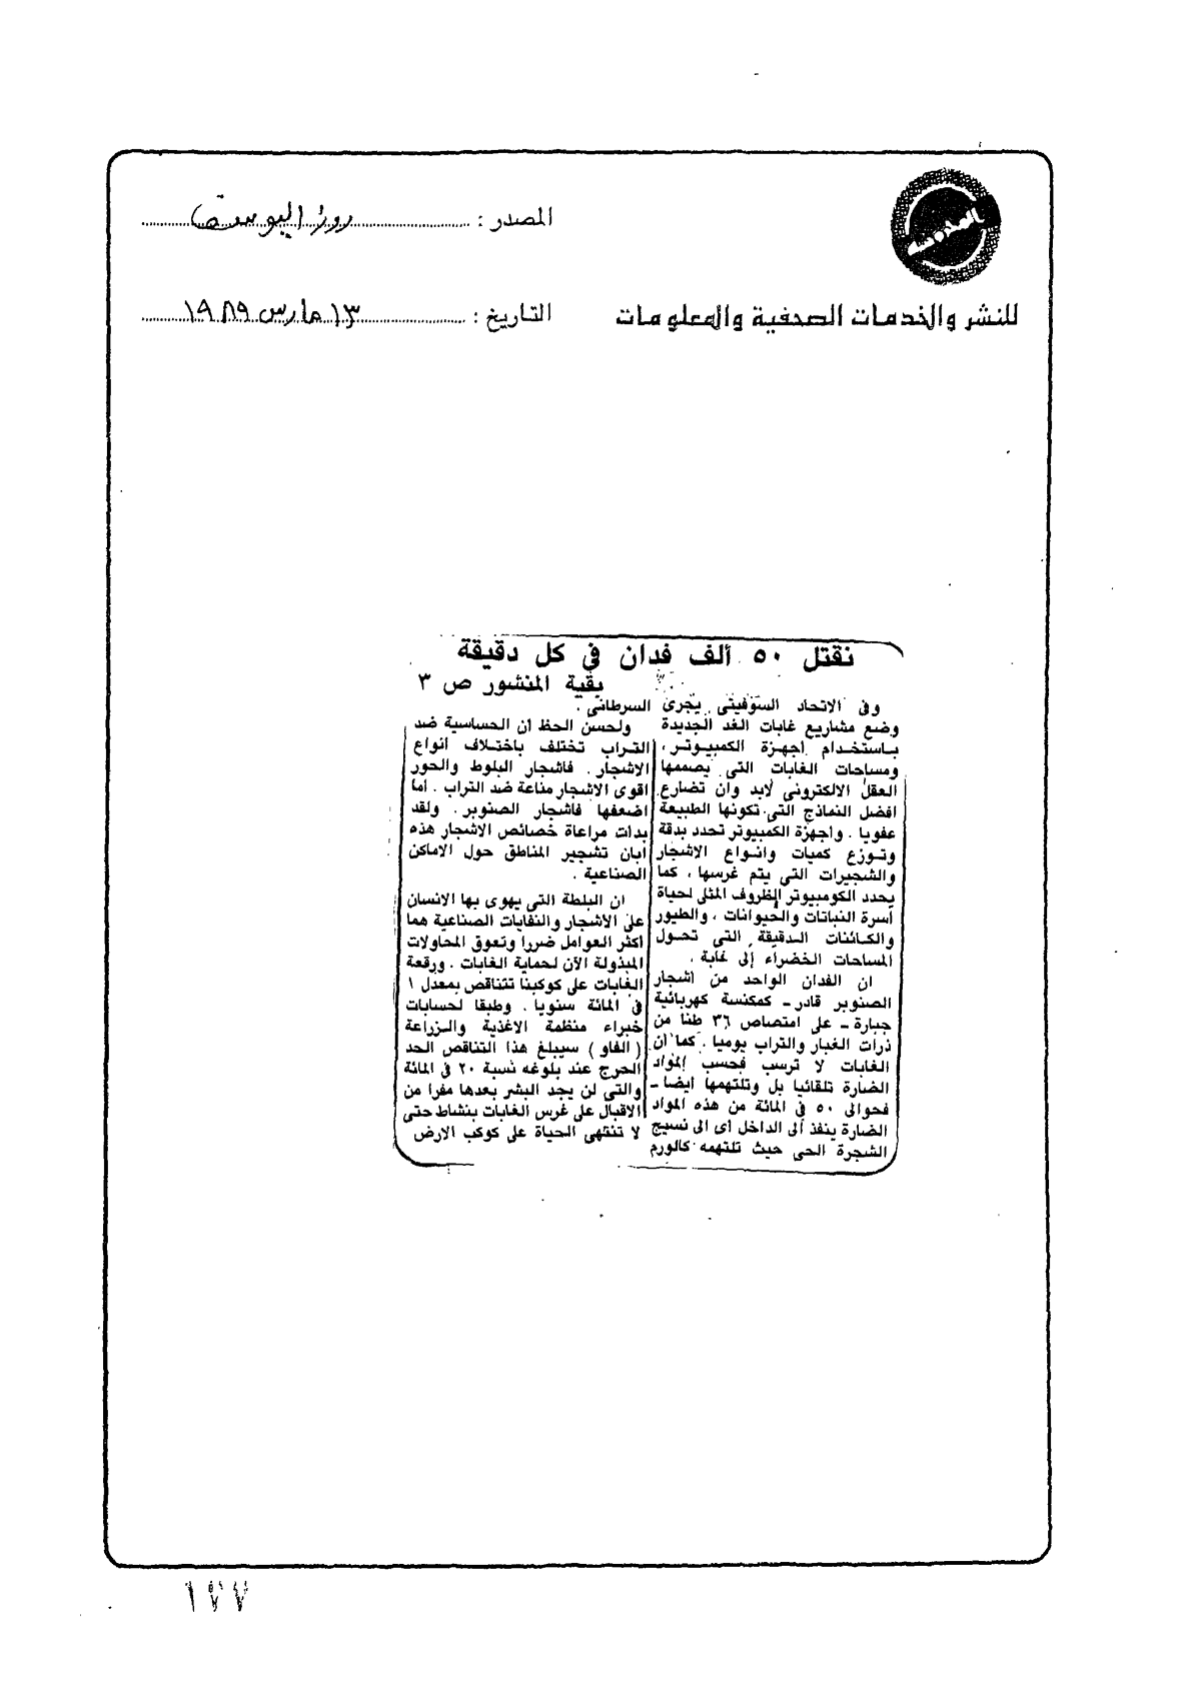 المصدر : روز اليوسف
للنشر والخدمات الصحفية والمعلومات
التاريخ : ١٣ مارس ١٩٨٩
نقتل ٥٠ ألف فدان في كل دقيقة
بقية المنشور ص ٣
وفى الاتحاد السوفيتى يجرى
وضع مشاريع غابات الغد الجديدة
باستخدام اجهزة الكمبيوتر ،
ومساحات الغابات التى يصممها
العقل الالكترونى لابد وان تضارع
افضل النماذج التى تكونها الطبيعة
عفويا . واجهزة الكمبيوتر تحدد بدقة
وتوزع كميات وانواع الاشجار
والشجيرات التى يتم غرسها ، كما
يحدد الكومبيوتر الظروف المثلى لحياة
أسرة النباتات والحيوانات ، والطيور
والكائنات الدقيقة التى تحول
المساحات الخضراء إلى غابة .
ان الفدان الواحد من اشجار
الصنوبر قادر ـ كمكنسة كهربائية
جبارة ـ على امتصاص ٣٦ طنا من
ذرات الغبار والتراب يوميا . كما ان
الغابات لا ترسب فحسب المواد
الضارة تلقائيا بل وتلتهمها ايضا ـ
فحوالى ٥٠ فى المائة من هذه المواد
الضارة ينفذ الى الداخل اى الى نسيج
الشجرة الحى حيث تلتهمه كالورم
السرطانى .
ولحسن الحظ ان الحساسية ضد
التراب تختلف باختلاف انواع
الاشجار . فاشجار البلوط والحور
اقوى الاشجار مناعة ضد التراب . أما
اضعفها فاشجار الصنوبر . ولقد
بدات مراعاة خصائص الاشجار هذه
ابان تشجير المناطق حول الاماكن
الصناعية .
ان البلطة التى يهوى بها الانسان
على الاشجار والنفايات الصناعية هما
اكثر العوامل ضررا وتعوق المحاولات
المبذولة الآن لحماية الغابات . ورقعة
الغابات على كوكبنا تتناقص بمعدل ١
فى المائة سنويا . وطبقا لحسابات
خبراء منظمة الاغذية والزراعة
( الفاو ) سيبلغ هذا التناقص الحد
الحرج عند بلوغه نسبة ٢٠ فى المائة
والتى لن يجد البشر بعدها مفرا من
الاقبال على غرس الغابات بنشاط حتى
لا تنتهى الحياة على كوكب الارض